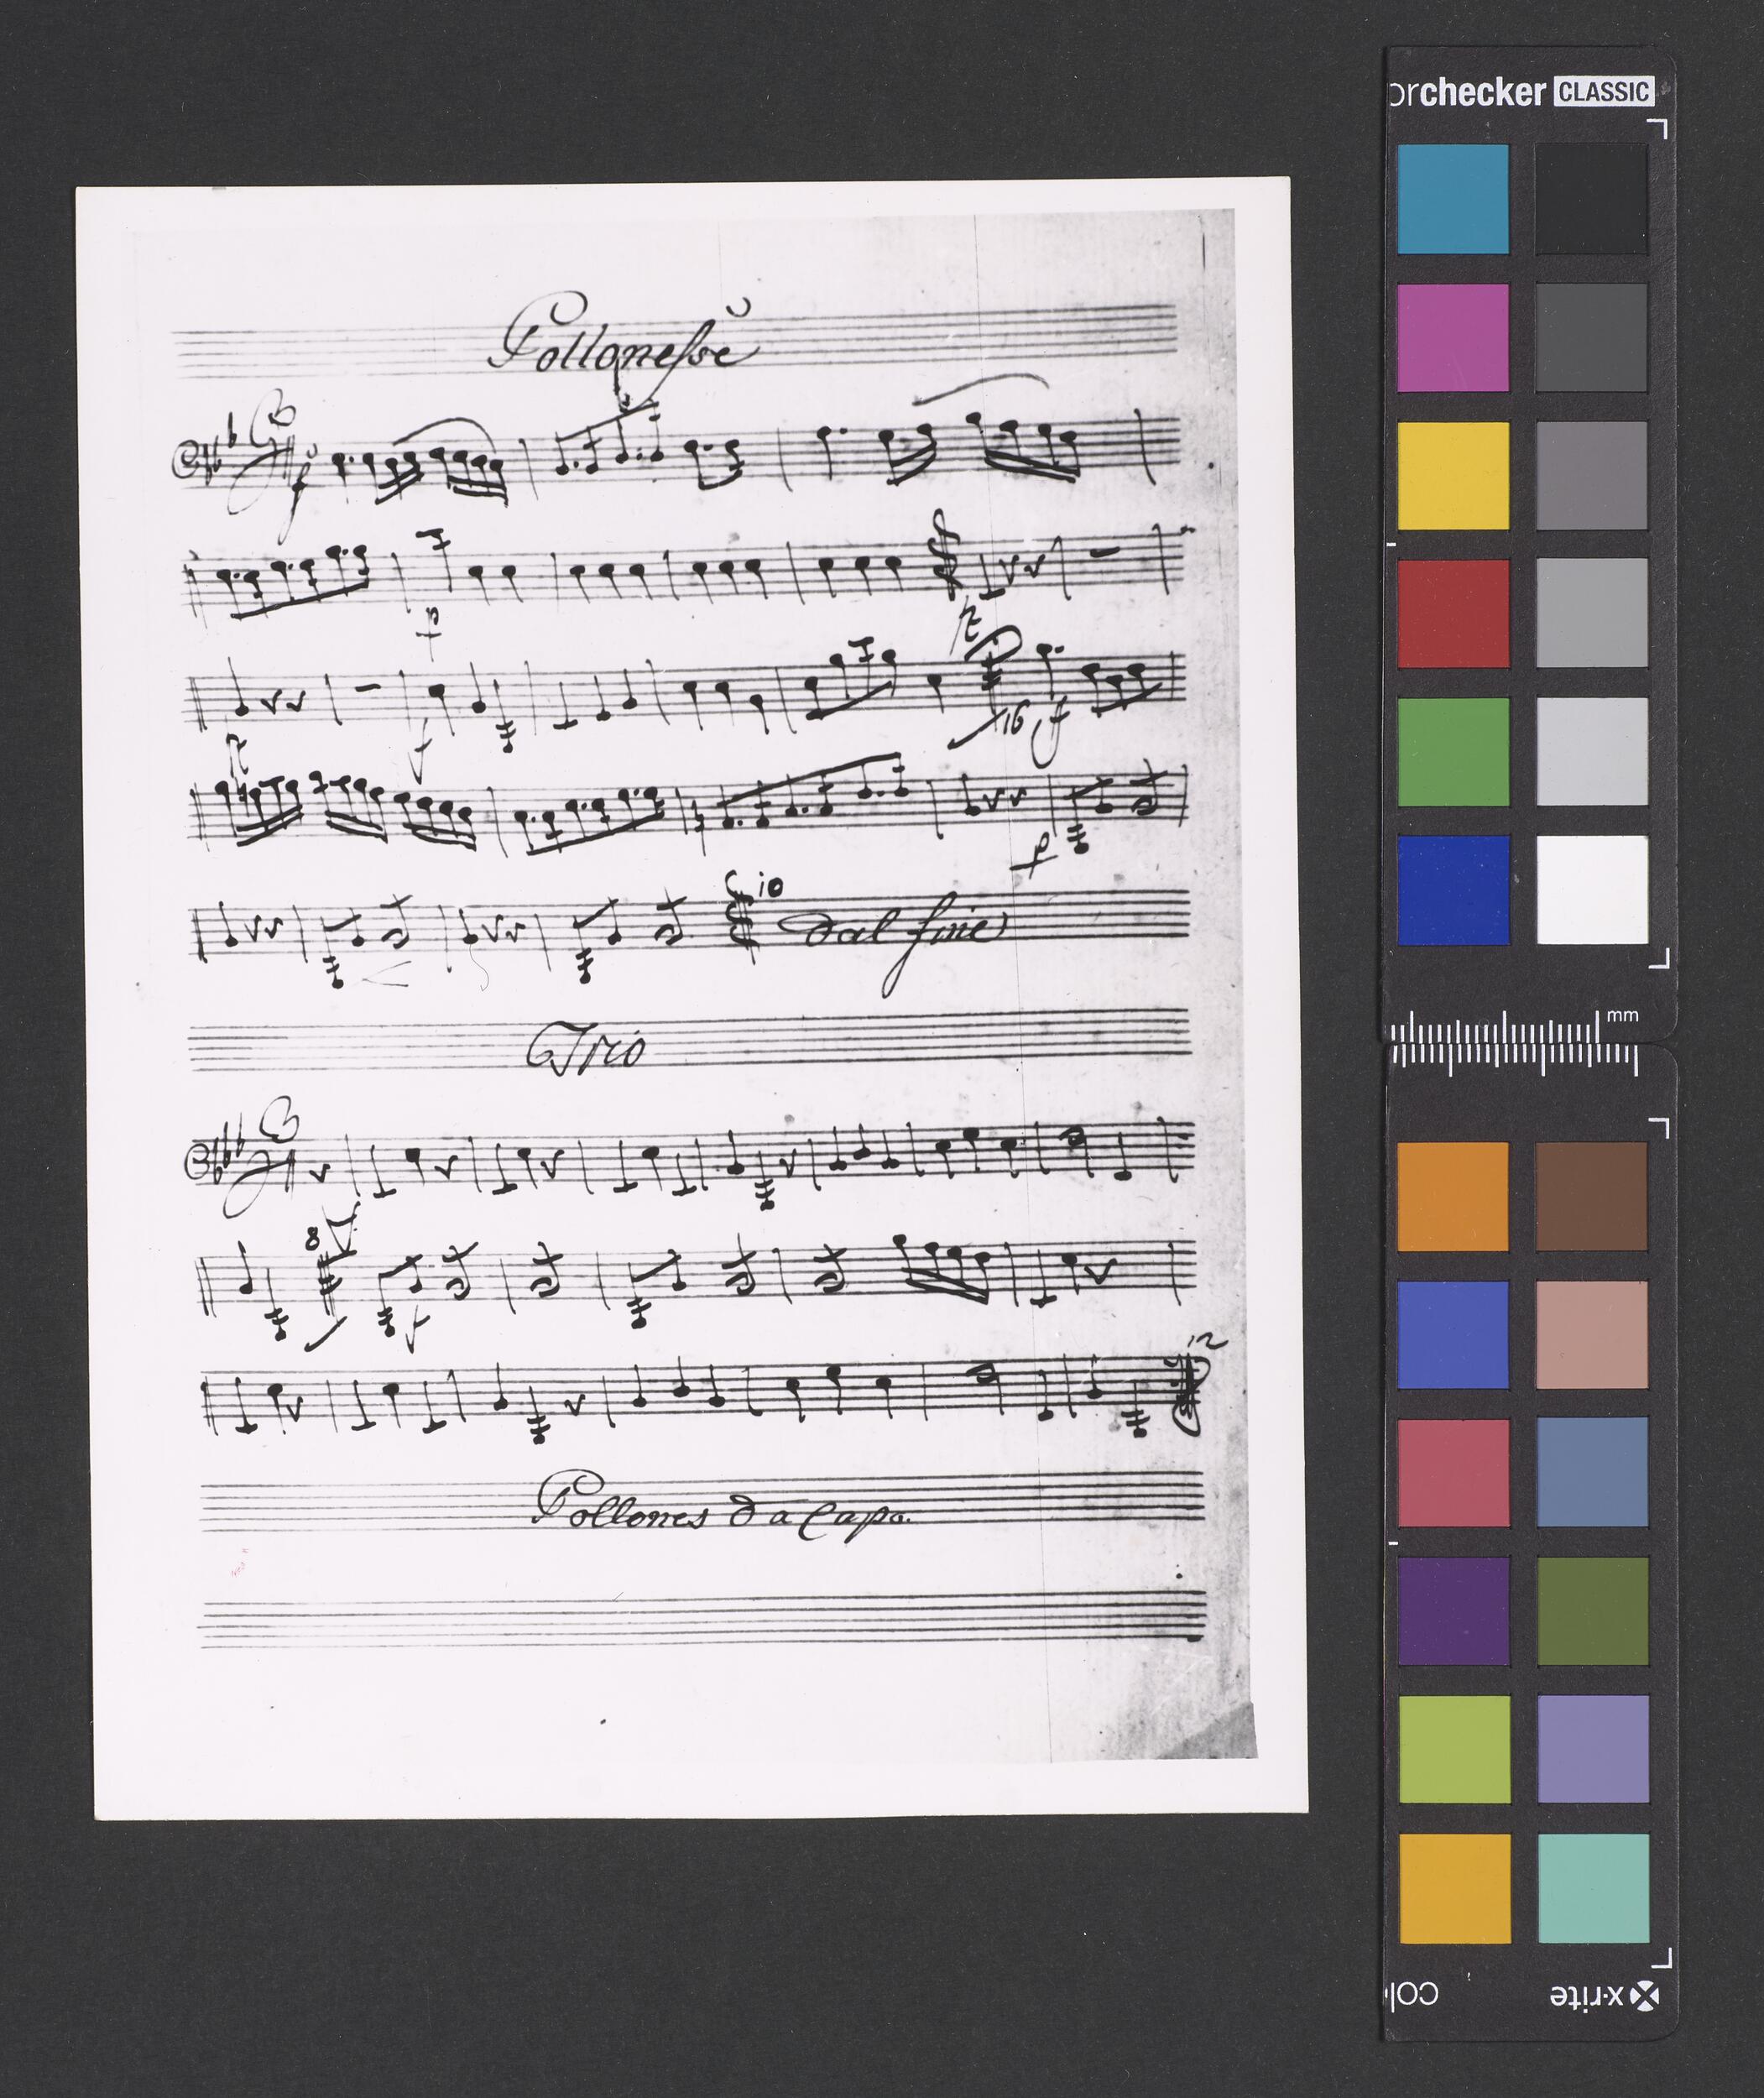 orchecker CLASSIC
Pollonesse
f
p
f
16 f
p
10
dal fine
mm
Trio
8
f
12
Pollones da Capo.
x-rite
col